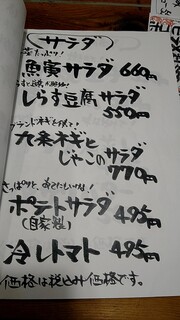 サラダ
魚貝サラダ 660円
しらす豆腐サラダ
550円
九条ネギと
じゃこのサラダ
770円
さっぱりと、おさえたいね!
ポテトサラダ 495円
(自家製)
冷しトマト 495円
価格は税込み価格です。